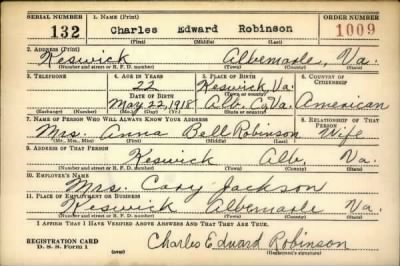 SERIAL NUMBER 1. NAME (Print) ORDER NUMBER
132 Charles Edward Robinson 1009
(First) (Middle) (Last)
2. ADDRESS (Print)
Keswick Albemarle, Va.
(Number and street or R. F. D. number) (Town) (County) (State)
3. TELEPHONE 4. AGE IN YEARS 5. PLACE OF BIRTH 6. COUNTRY OF CITIZENSHIP
22 Keswick, Va.
DATE OF BIRTH (Town or county)
May 22, 1918 Alb. Co Va. American
(Exchange) (Number) (Mo.) (Day) (Yr.) (State or country)
7. NAME OF PERSON WHO WILL ALWAYS KNOW YOUR ADDRESS 8. RELATIONSHIP OF THAT PERSON
Mrs. Anna Bell Robinson Wife
(Mr., Mrs., Miss) (First) (Middle) (Last)
9. ADDRESS OF THAT PERSON
Keswick Alb. Va.
(Number and street or R. F. D. number) (Town) (County) (State)
10. EMPLOYER'S NAME
Mrs. Cary Jackson
11. PLACE OF EMPLOYMENT OR BUSINESS
Keswick Albemarle Va.
(Number and street or R. F. D. number) (Town) (County) (State)
I AFFIRM THAT I HAVE VERIFIED ABOVE ANSWERS AND THAT THEY ARE TRUE.
REGISTRATION CARD
D. S. S. Form 1 (over) Charles Edward Robinson
(Registrant's signature)